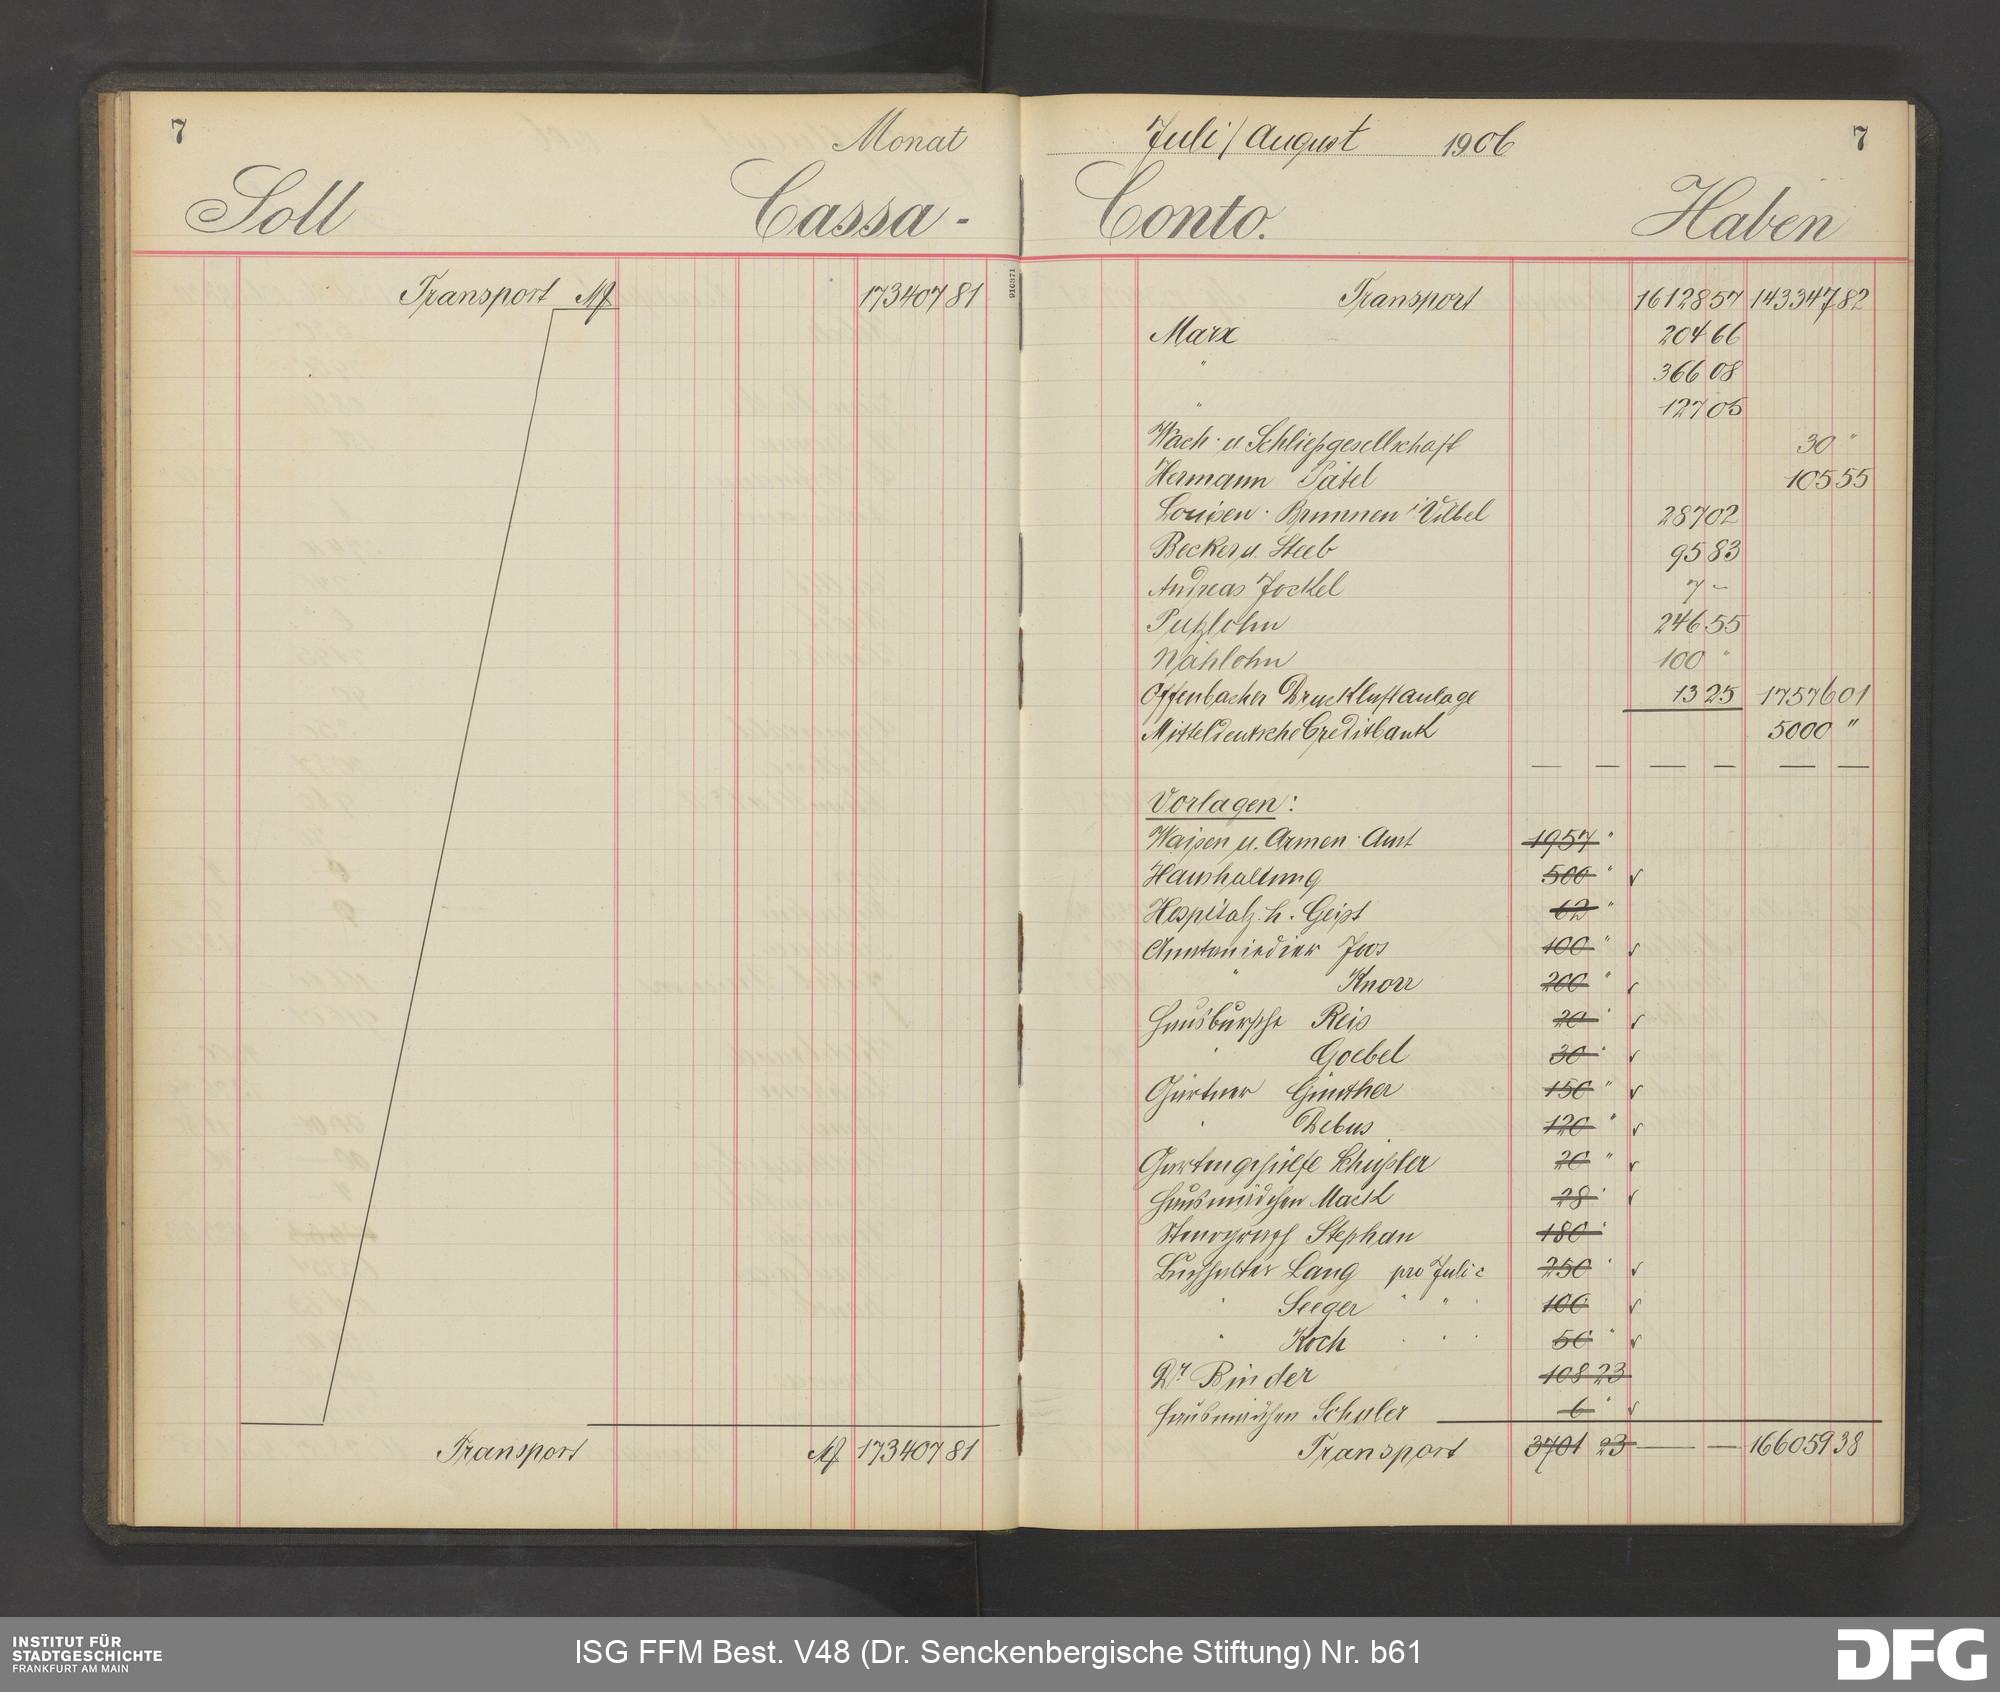 7
Monat
Soll
Cassa-
Transport M 173407 81
Transport M 173407 81
916371
Juli/August 1906
7
Conto.
Haben
Transport 16128 57 143347 82
Marx 204 66
" 366 08
" 127 05
Wach- u Schließgesellschaft 30 "
Hermann Pätel 105 55
Louisen-Brunnen i/Vilbel 287 02
Becker u. Steeb 95 83
Andreas Jockel 7 –
Putzlohn 246 55
Nählohn 100 "
Offenbacher Druckluftanlage 13 25 17576 01
Mitteldeutsche Creditbank 5000 "
— — — — — —
Vorlagen:
Waisen u. Armen-Amt 1957 "
Haushaltung 500 " ✓
Hospital z. h. Geist 62 "
Anatomiediener Joos 100 " ✓
" Knorr 200 " ✓
Hausbursche Reis 20 " ✓
" Goebel 30 " ✓
Gärtner Günther 150 " ✓
" Debus 120 " ✓
Gartengehülfe Schüssler 20 " ✓
Hausmädchen Mack 28 " ✓
Stenograph Stephan 180 "
Buchhalter Lang pro Juli c 250 " ✓
" Seeger " " " 100 ✓
" Koch " " " 50 " ✓
Dr. Binder 108 23
Hausmädchen Schuler 6 " ✓
Transport 3701 23 — — 166059 38
INSTITUT FÜR
STADTGESCHICHTE
FRANKFURT AM MAIN
ISG FFM Best. V48 (Dr. Senckenbergische Stiftung) Nr. b61
DFG